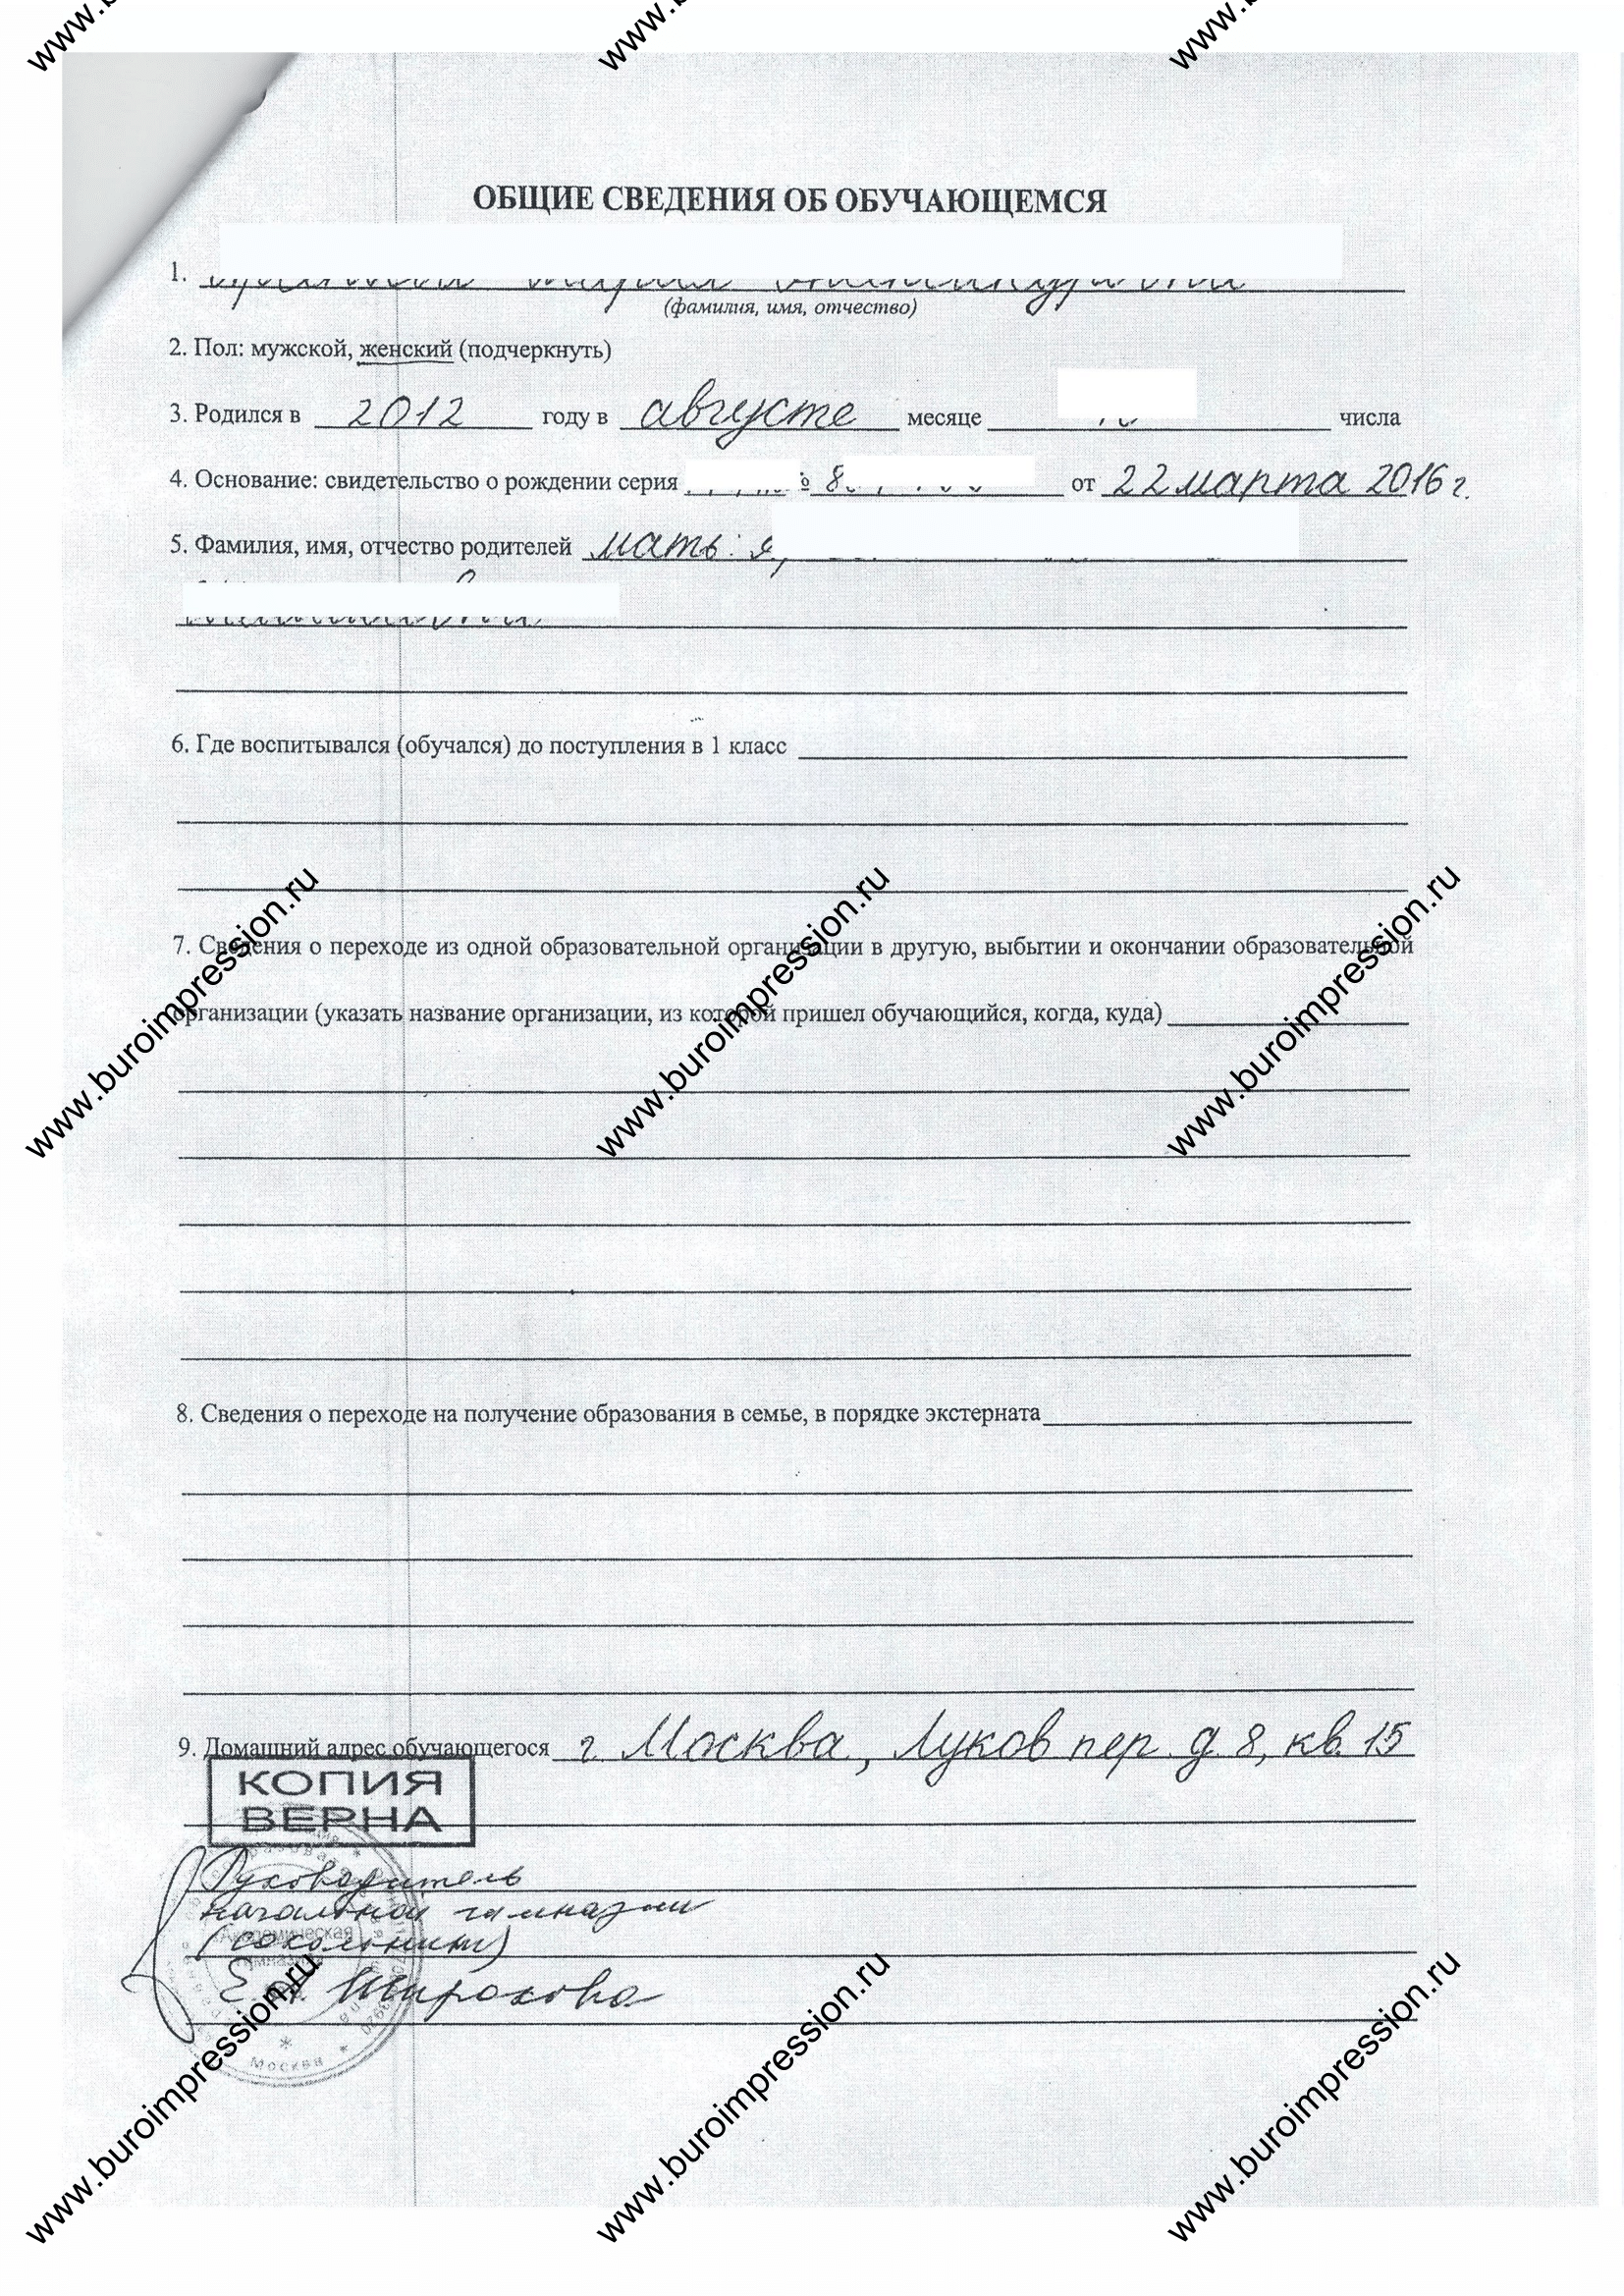 www.b
www.b
www.b
ОБЩИЕ СВЕДЕНИЯ ОБ ОБУЧАЮЩЕМСЯ
1.
(фамилия, имя, отчество)
2. Пол: мужской, женский (подчеркнуть)
3. Родился в 2012 году в августе месяце числа
4. Основание: свидетельство о рождении серия 8 от 22 марта 2016 г.
5. Фамилия, имя, отчество родителей мать:
6. Где воспитывался (обучался) до поступления в 1 класс
www.buroimpression.ru
www.buroimpression.ru
www.buroimpression.ru
7. Сведения о переходе из одной образовательной организации в другую, выбытии и окончании образовательной
организации (указать название организации, из которой пришел обучающийся, когда, куда)
8. Сведения о переходе на получение образования в семье, в порядке экстерната
9. Домашний адрес обучающегося г. Москва, Луков пер. д. 8, кв. 15
КОПИЯ
ВЕРНА
Руководитель
начальной гимназии
(сокольники)
Е.А. Широкова
Москва
www.buroimpression.ru
www.buroimpression.ru
www.buroimpression.ru